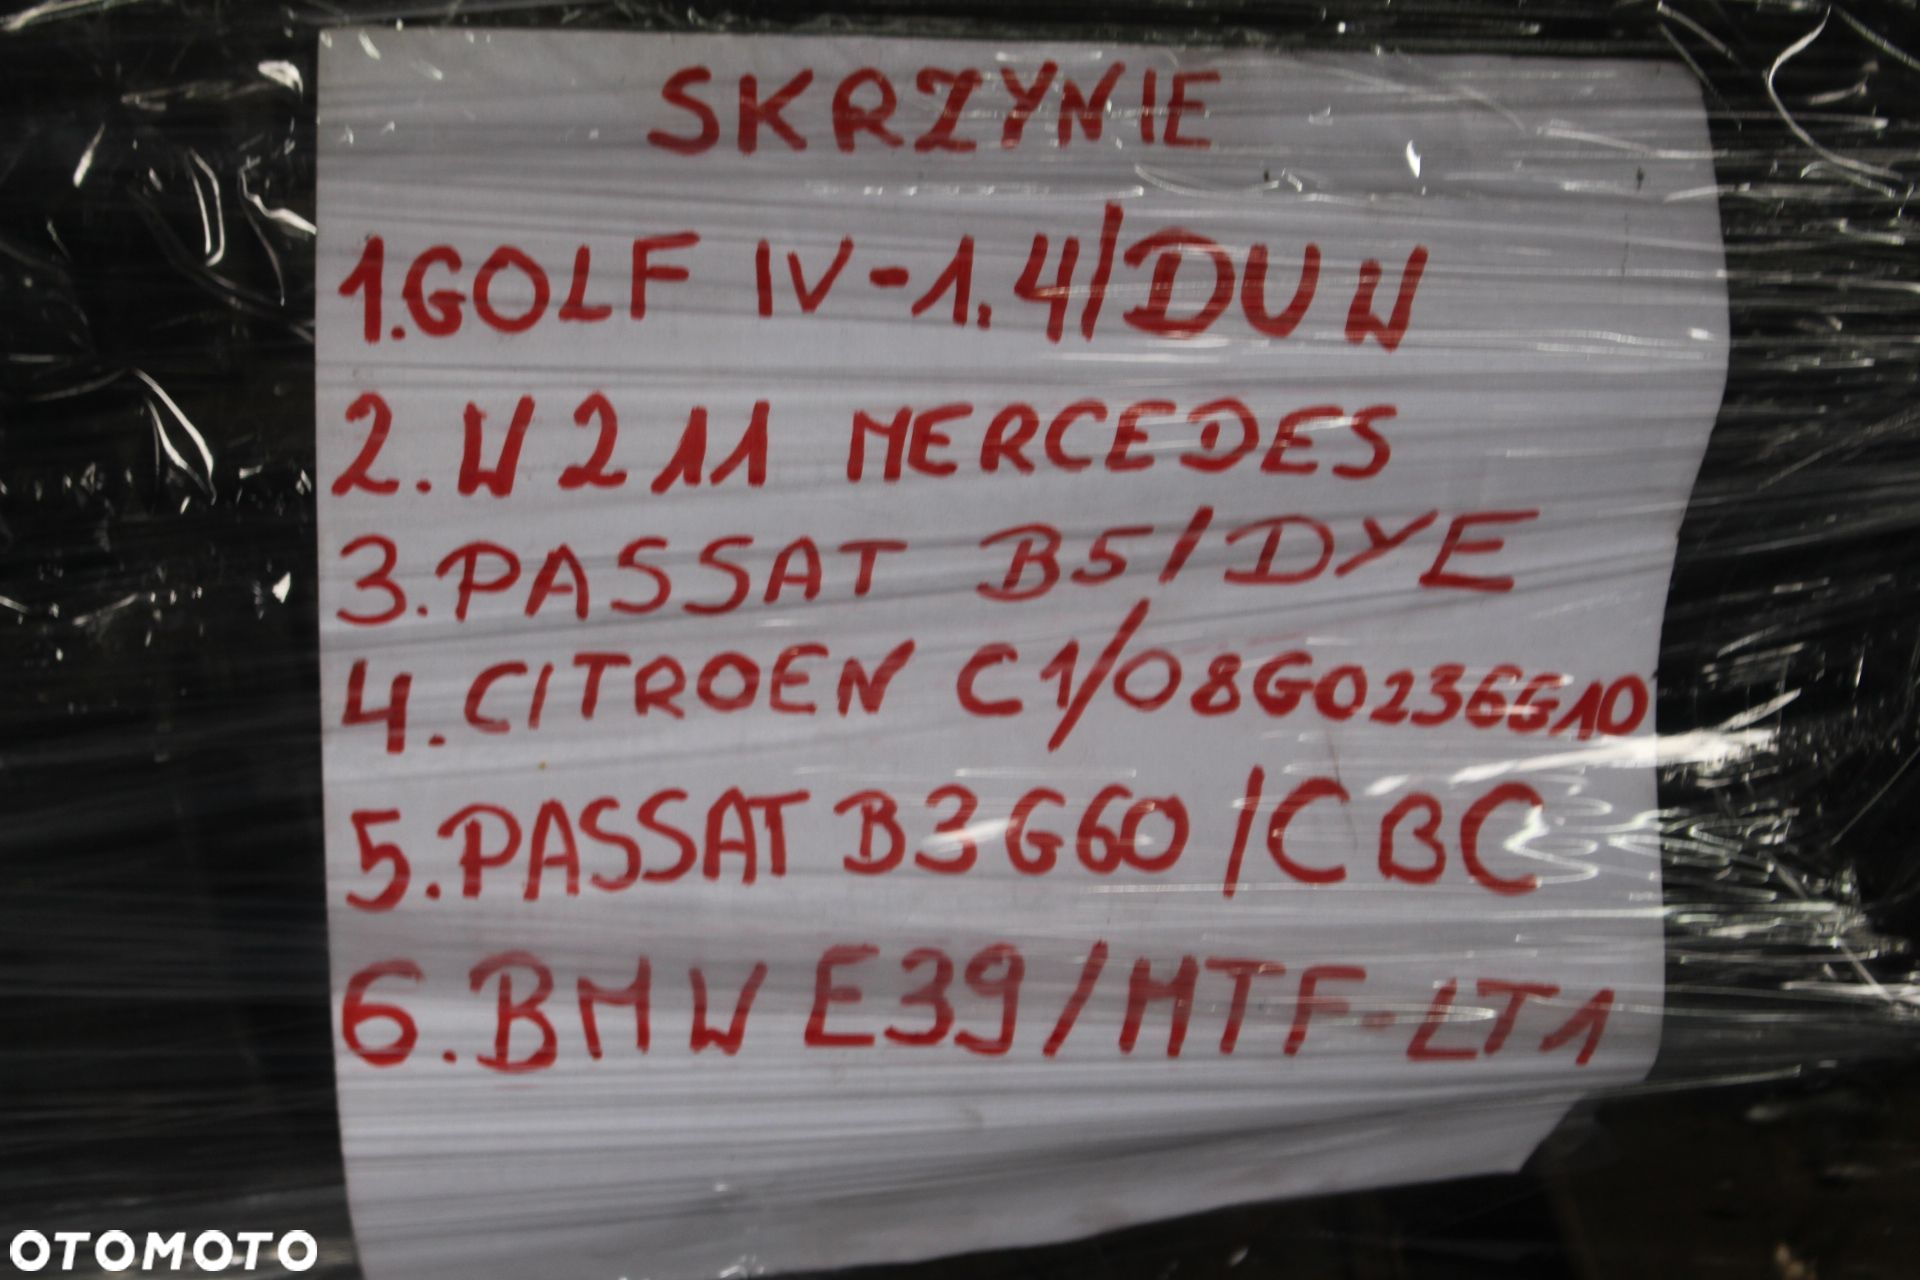 SKRZYNIE
1.GOLF IV-1.4/DUW
2.W211 MERCEDES
3.PASSAT B5/DYE
4.CITROEN C1/08G0236G10
5.PASSAT B3G60/CBC
6.BMW E39/MTF-LT1
OTOMOTO